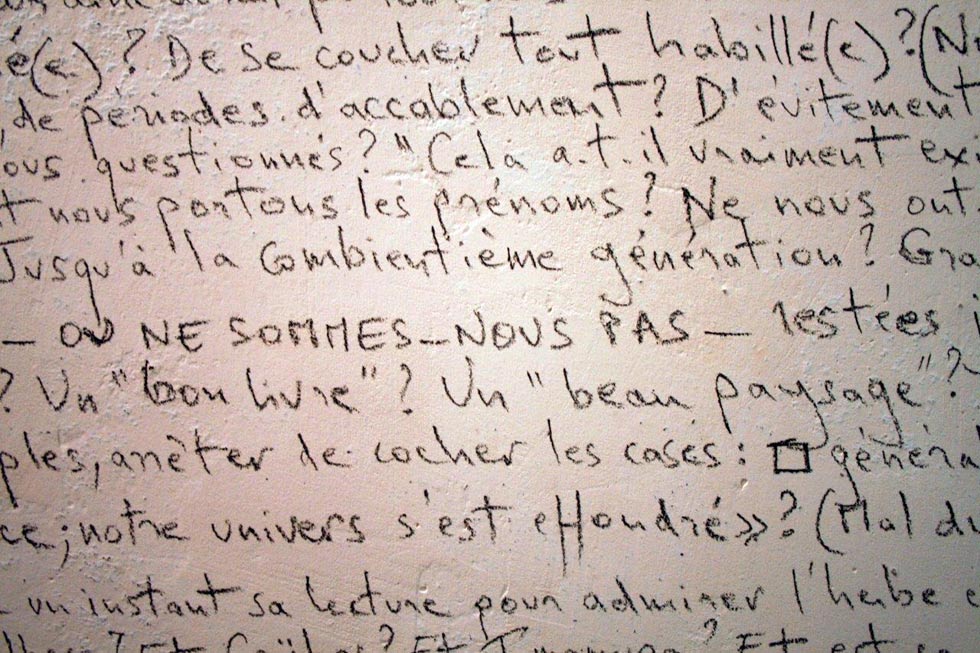 é(e)? De se coucher tout habillé(e)? (N
, de périodes d'accablement? D'évitement
ous questionnés? "Cela a.t.il vraiment exi
t nous portons les prénoms? Ne nous ont
Jusqu'à la combientième génération? Gra
_ OU NE SOMMES_NOUS PAS _ restées
? Un "bon livre"? Un "beau paysage"?
ples, arrêter de cocher les cases: □ général
ce; notre univers s'est effondré»? (Mal de
un instant sa lecture pour admirer l'herbe e